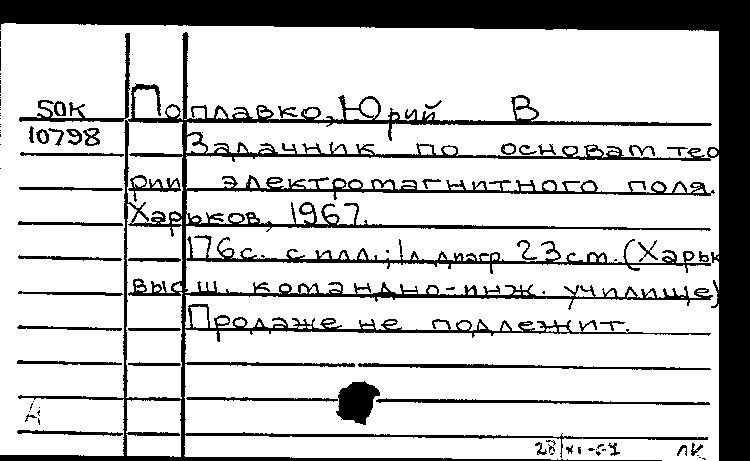 50К Поплавко, Юрий В
10798 Задачник по основам тео
рии электромагнитного поля.
Харьков, 1967.
176с. с илл.; 1л. диагр. 23см. (Харьк
высш. командно-инж. училище)
Продаже не подлежит.
ЛК